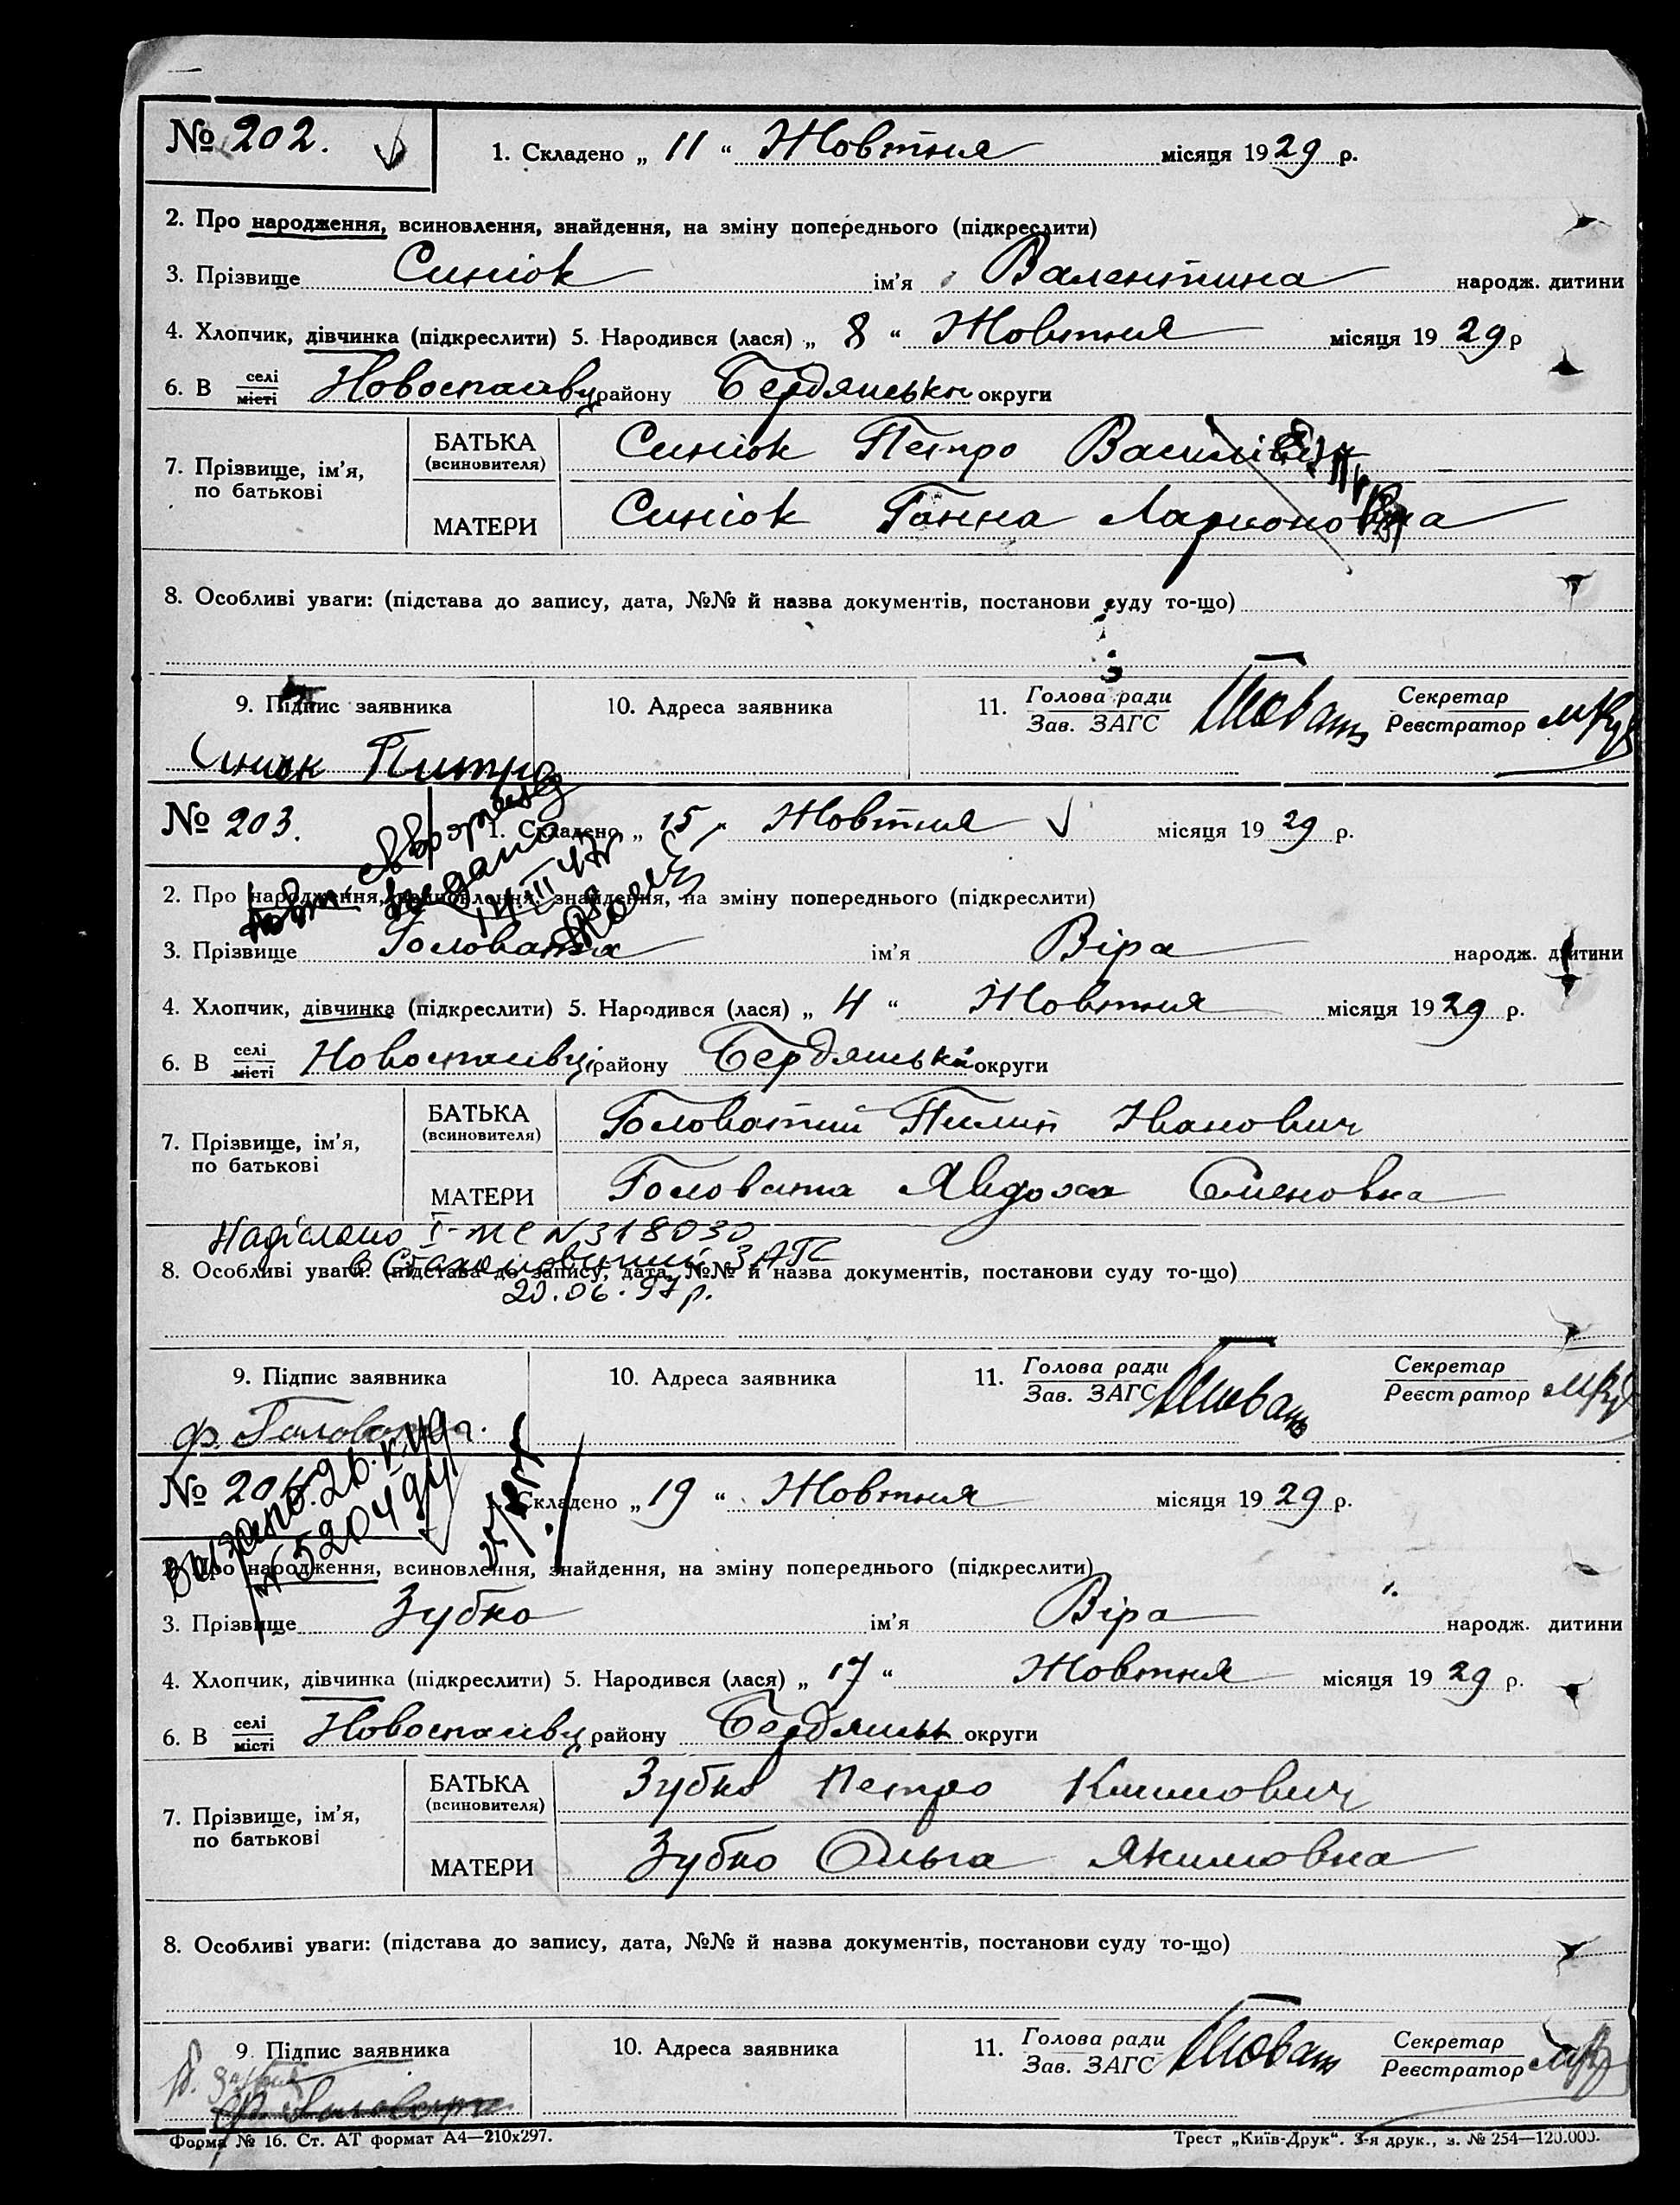 № 202.
1. Складено „ 11 “ Жовтня місяця 1929 р.
2. Про народження, всиновлення, знайдення, на зміну попереднього (підкреслити)
3. Прізвище Синіок ім’я Валентина народж. дитини
4. Хлопчик, дівчинка (підкреслити) 5. Народився (лася) „ 8 “ Жовтня місяця 1929 р
6. В селі місті Новоспаівці району Бердянськи округи
7. Прізвище, ім’я, по батькові
БАТЬКА (всиновителя) Синіок Петро
МАТЕРИ Синіок Ганна Ларионовна
8. Особливі уваги: (підстава до запису, дата, №№ й назва документів, постанови суду то-що)
9. Підпис заявника
10. Адреса заявника
11. Голова ради Зав. ЗАГС
Секретар Реєстратор
Синюк Питро
№ 203.
1. Складено „ 15 “ Жовтня місяця 1929 р.
2. Про народження, всиновлення, знайдення, на зміну попереднього (підкреслити)
3. Прізвище Головата ім’я Віра народж. дитини
4. Хлопчик, дівчинка (підкреслити) 5. Народився (лася) „ 4 “ Жовтня місяця 1929 р.
6. В селі місті Новоспаівці району Бердянськи округи
7. Прізвище, ім’я, по батькові
БАТЬКА (всиновителя) Головатий Пилип Іванович
МАТЕРИ Головата Явдоха Семеновна
Надіслано І-ЖС N 318030
в Стахановський ЗАГС
8. Особливі уваги: (підстава до запису, дата, №№ й назва документів, постанови суду то-що)
20.06.97р.
9. Підпис заявника
10. Адреса заявника
11. Голова ради Зав. ЗАГС
Секретар Реєстратор
ф. Головата.
№ 204
1. Складено „ 19 “ Жовтня місяця 1929 р.
2. Про народження, всиновлення, знайдення, на зміну попереднього (підкреслити)
3. Прізвище Зубко ім’я Віра народж. дитини
4. Хлопчик, дівчинка (підкреслити) 5. Народився (лася) „ 17 “ Жовтня місяця 1929 р.
6. В селі місті Новоспаівці району Бердянськ округи
7. Прізвище, ім’я, по батькові
БАТЬКА (всиновителя) Зубко Петро Климович
МАТЕРИ Зубко Ольга Якимовна
8. Особливі уваги: (підстава до запису, дата, №№ й назва документів, постанови суду то-що)
9. Підпис заявника
10. Адреса заявника
11. Голова ради Зав. ЗАГС
Секретар Реєстратор
Форма № 16. Ст. АТ формат А4—210х297.
Трест „Київ-Друк“. 3-я друк., з. № 254—120.000.